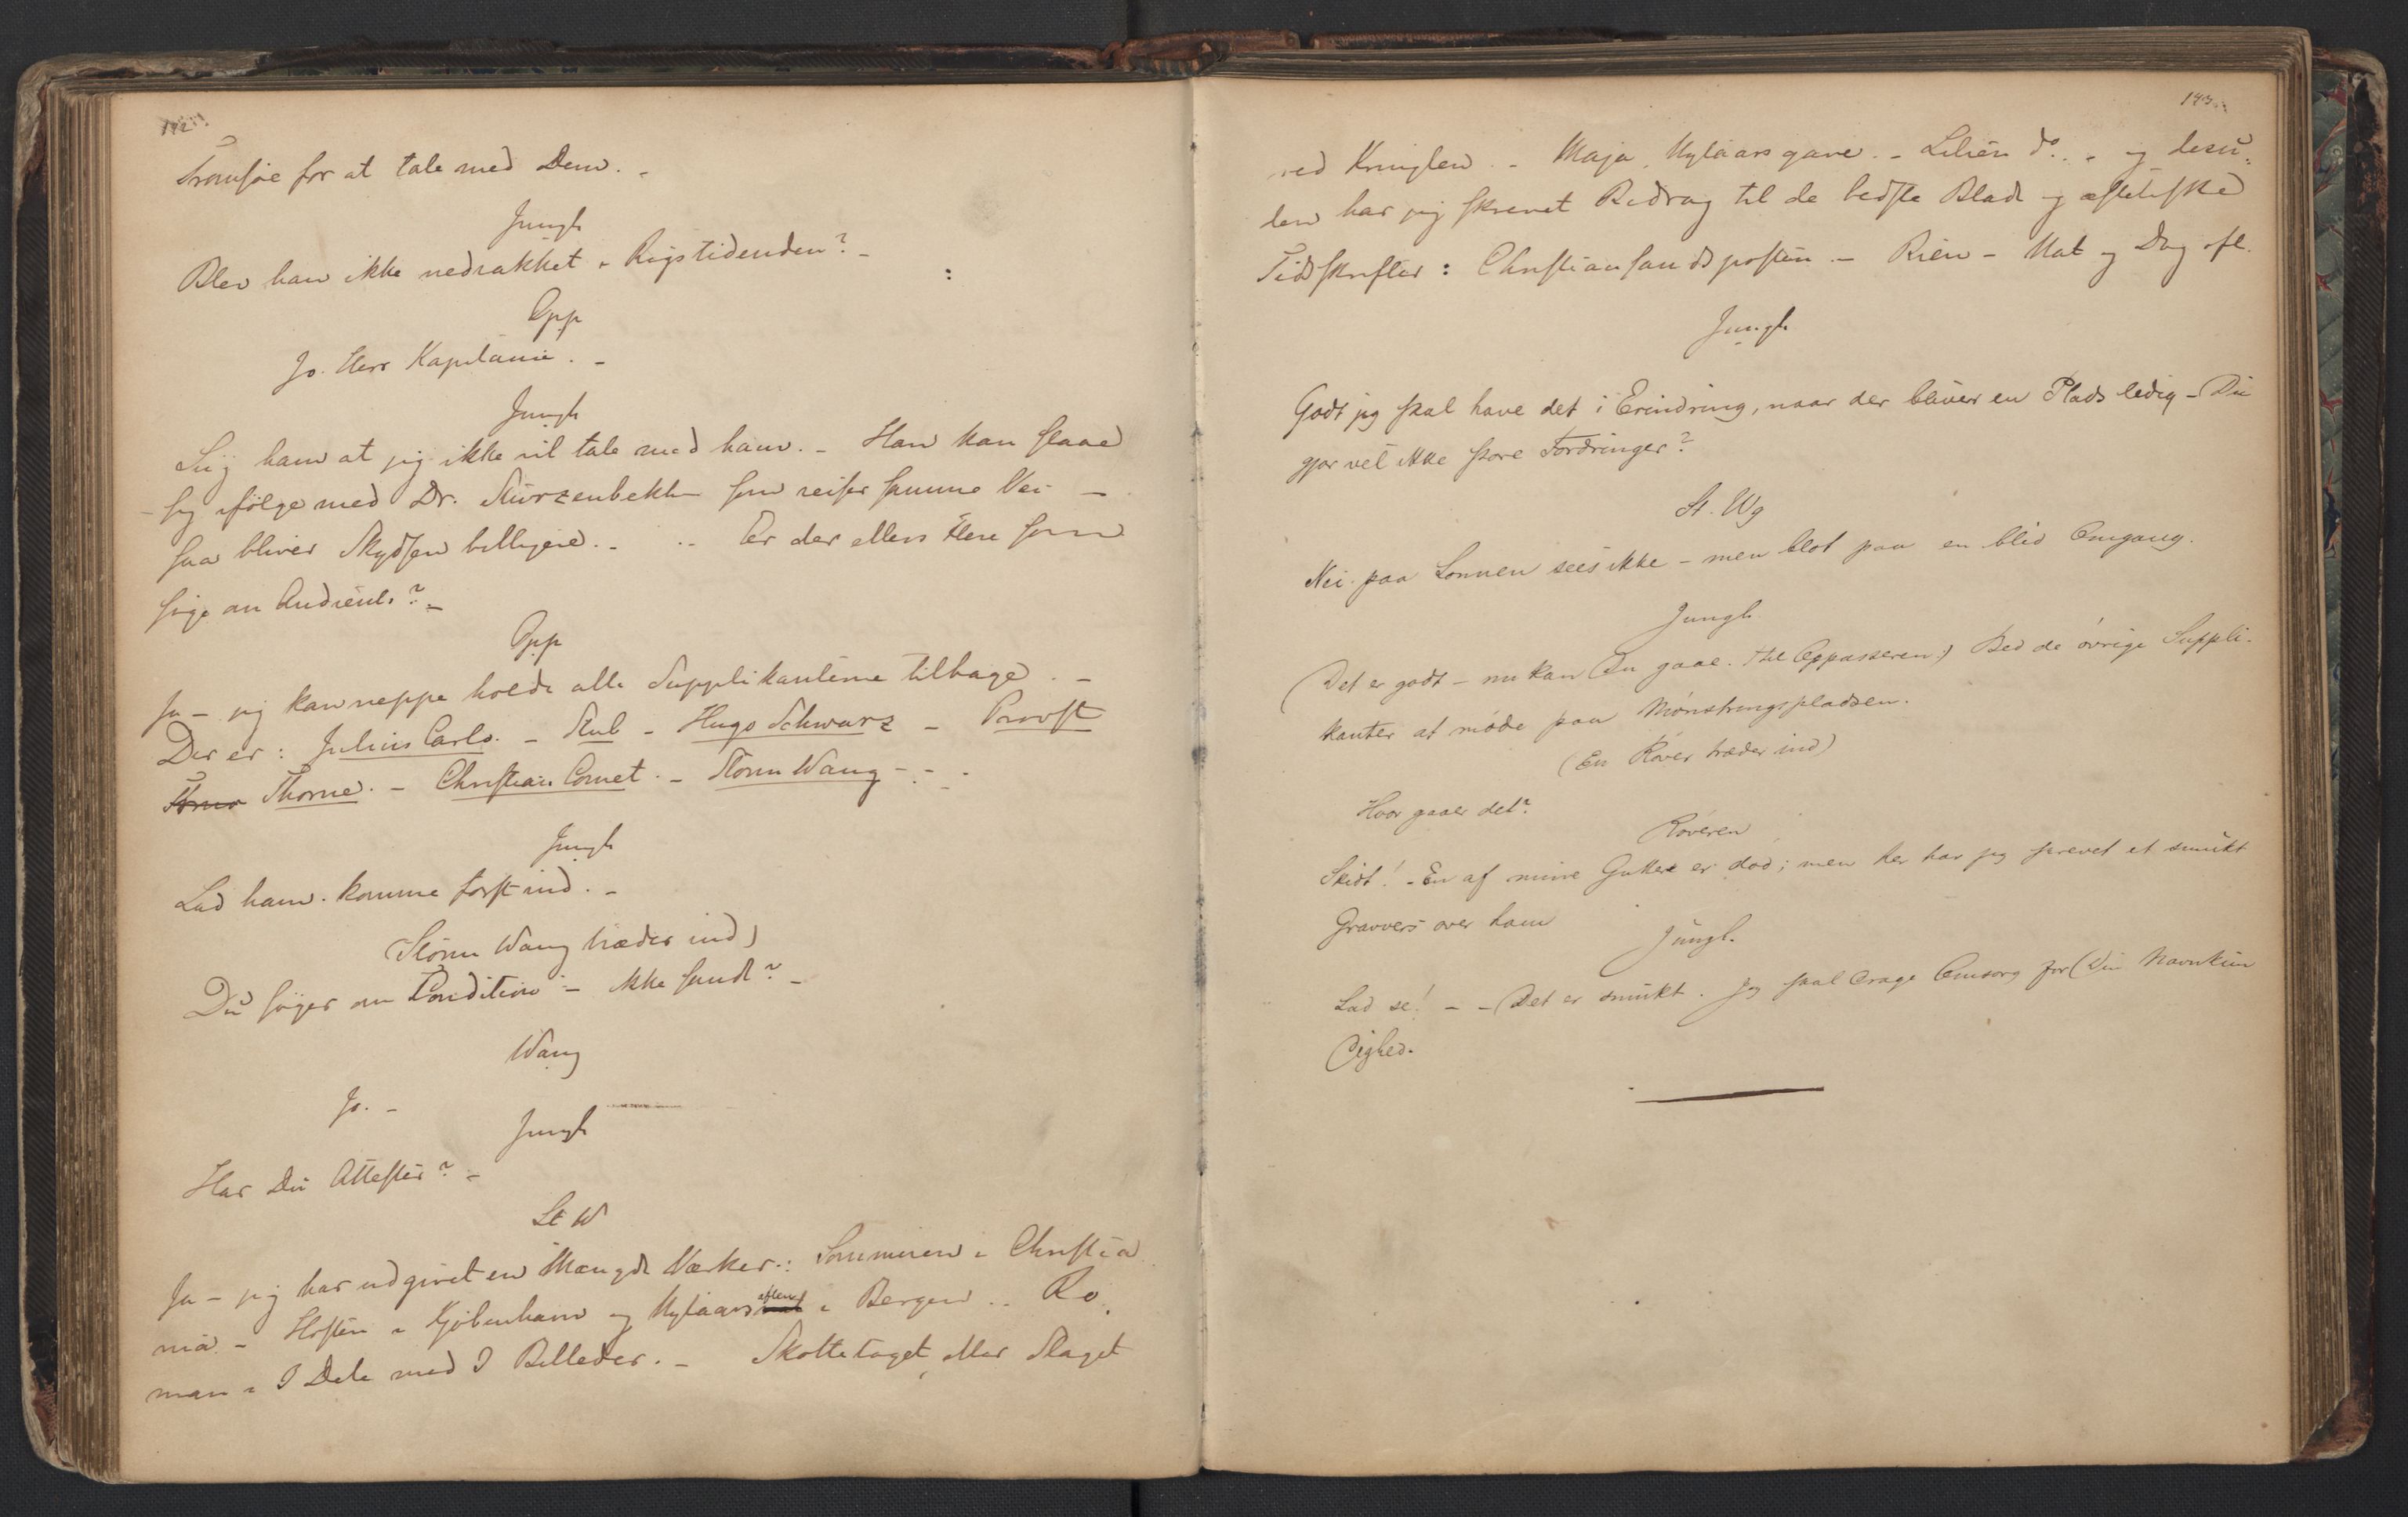 142
Tromsøe for at tale med Dem. -
Jungh
Blev han ikke nedrakket i Rigstidenden? -
Opp
Jo. Herr Kapitaine. -
Jungh
Siig ham at jeg ikke vil tale med ham. - Han kan slaae
sig ifölge med Dr. Stürzenbekker som reiser samme Vei -
saa bliver Skydsen billigere. - .. Er der ellers flere som
søge om Audients? -
Opp
Ja - jeg kan neppe holde alle Supplikanterne tilbage. -
Der er: Julius Carlo. - Rub - Hugo Schwarz - Provst
Thorne. - Christian Comet. - Storm Wang - - -
Jungh
Lad ham komme først ind. -
(Storm Wang træder ind)
Du søger om Condition - ikke sandt? -
Wang
Jo. -
Jungh
Har Du Attester? -
St W
Ja - jeg har udgivet en Mængde Værker: Sommeren i Christia
nia - Høsten i Kjöbenhavn og Nytaarsaften i Bergen .. Ro
man i 9 Dele med 9 Billeder. - Skottetoget eller Slaget
143
ved Kringlen. - Maja, Nytaarsgave. - Lilien do. . og desu
den har jeg skrevet Bidrag til de bedste Blade og æstetiske
Tidsskrifter: Christiansandsposten. - Rien - Nat og Dag ofl.
Jungh
Godt jeg skal have det i Erindring, naar der bliver en Plads ledig - Du
gjør vel ikke store Fordringer?
St. Wg
Nei. paa Lønnen sees ikke - men blot paa en blid Omgang.
Jungh
Det er godt - nu kan Du gaae. (til Oppasseren) Bed de øvrige Suppli-
kanter at møde paa Mønstringspladsen.
(En Røver træder ind)
Hvor gaaer det?
Røveren
Skidt! - En af mine Gutter er død; men her har jeg skrevet et smukt
Gravvers over ham
Jungh.
Lad se! - - Det er smukt. Jeg skal drage Omsorg for Din Navnkun
dighed.